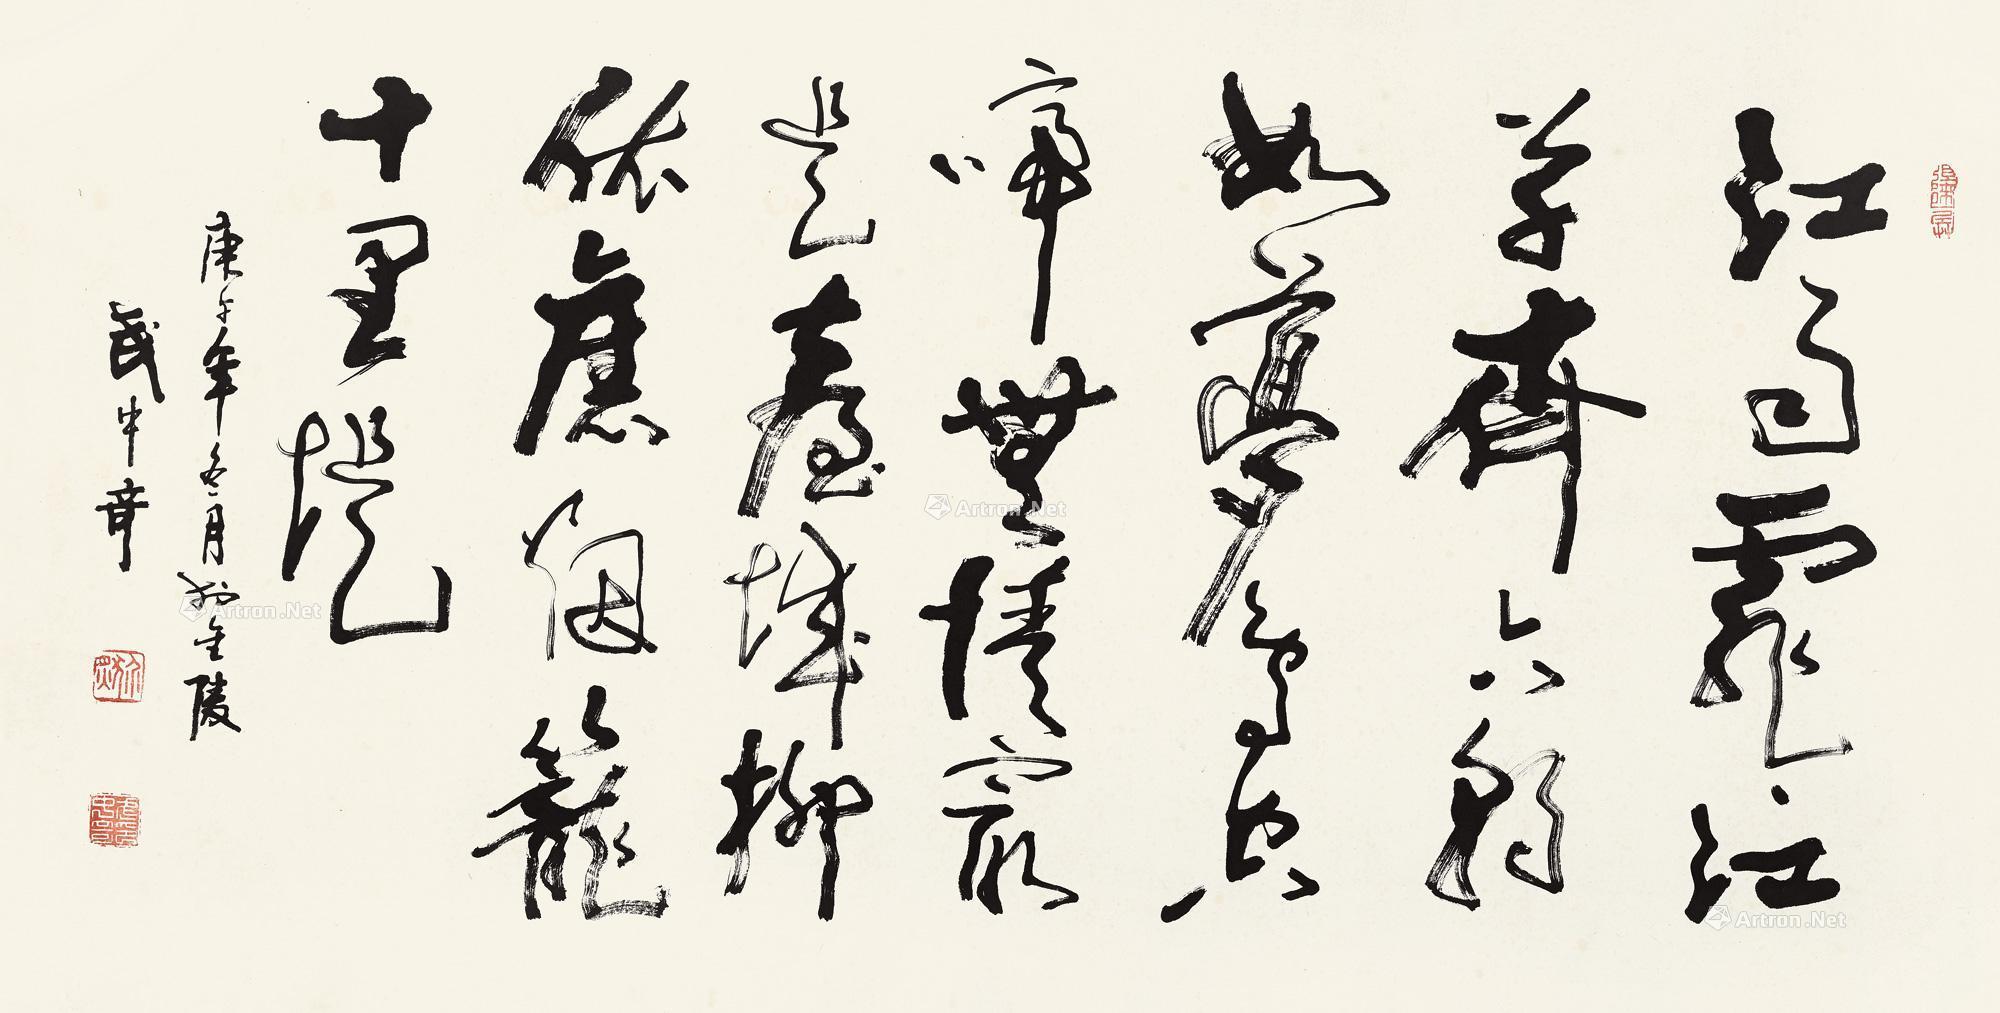 江雨霏江
草齊六朝
如夢鳥空
啼無情最
是臺城柳
依應烟籠
十里堤
庚午年冬月於金陵
武中奇
Artron.Net
Artron.Net
Artron.Net